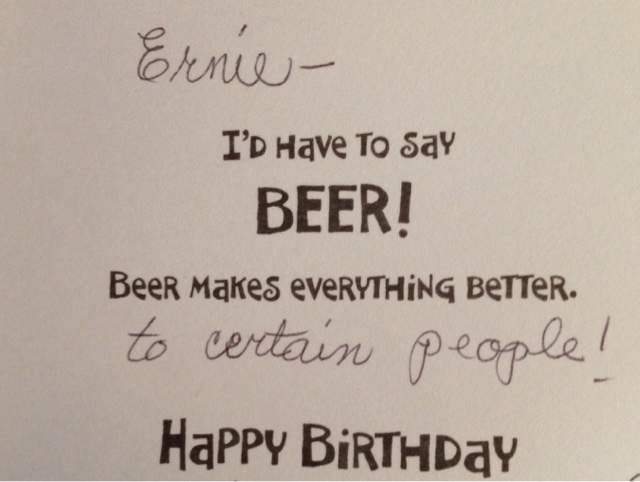 Ernie–
I'D HAVE TO SAY
BEER!
BEER MAKES EVERYTHING BETTER.
to certain people!
HAPPY BIRTHDAY